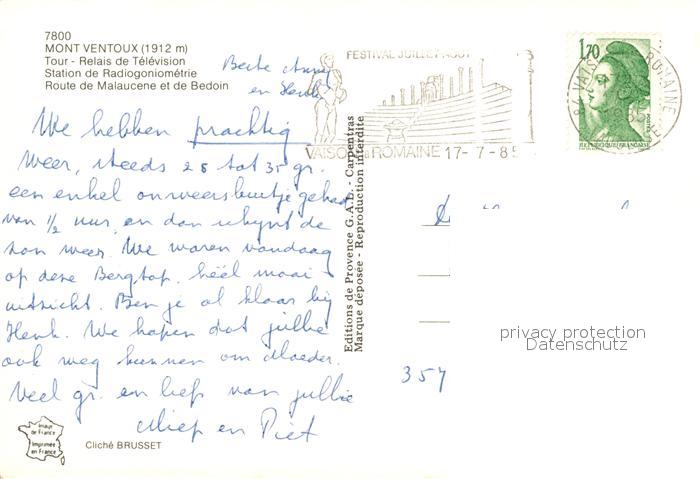 7800
MONT VENTOUX (1912 m)
Tour - Relais de Télévision
Station de Radiogoniométrie
Route de Malaucene et de Bedoin
Beste Anny
en Henk
We hebben prachtig
weer, steeds 28 tot 35 gr.
een enkel onweersbuitje gehad
van 1/2 uur, en dan schynt de
zon weer. We waren vandaag
op deze Bergtop. héél mooi
uitzicht. Ben je al klaar bij
Henk. We hopen dat jullie
ook weg kunnen om
Veel gr. en liefs van jullie
Miep en Piet
Image
de France
Imprimée
en France
Cliché BRUSSET
Editions de Provence G.A.L. - Carpentras
Marque déposée - Reproduction interdite
FESTIVAL JUILLET AOUT
VAISON la ROMAINE 17-7-85
1,70
POSTES
REPUBLIQUE FRANÇAISE
84 VAISON ROMAINE
357
privacy protection
Datenschutz